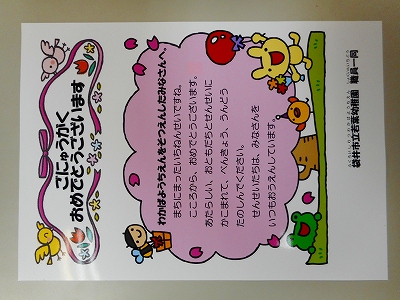 ごにゅうがく
おめでとうございます
わかばようちえんをそつえんしたみなさんへ。
まちにまったいちねんせいですね。
こころから、おめでとうございます。
あたらしい、おともだちとせんせいに
かこまれて、べんきょう、うんどう
たのしんでください。
せんせいたちは、みなさんを
いつもおうえんしています。
袋井市立若葉幼稚園　職員一同